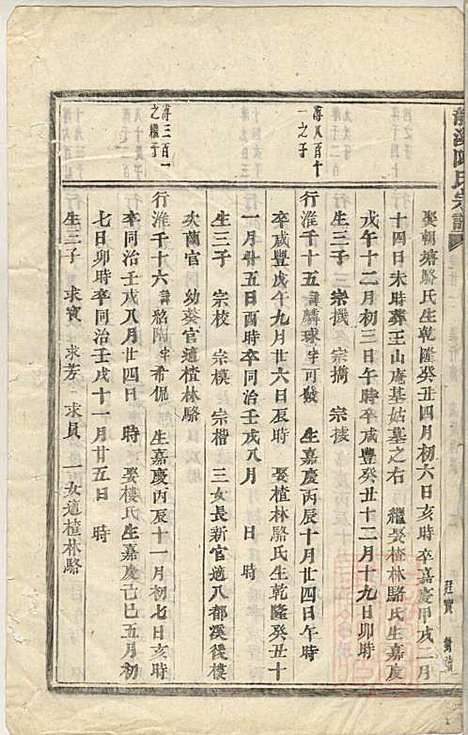 陳氏宗譜
娶朝塘駱氏生乾隆癸丑四月初六日亥時卒嘉慶甲戌二月
十四日未時葬王山庵基姑墓之右 繼娶楂林駱氏生嘉慶
戊午十二月初三日午時卒咸豐癸丑十二月十九日卯時
生三子 宗機 宗擕 宗援
壽八百十
一之子
行淮千十五諱麟球字可發 生嘉慶丙辰十月廿四日午時
卒咸豐戊午九月廿六日辰時 娶楂林駱氏生乾隆癸丑十
一月廿五日酉時卒同治壬戌八月 日 時
生三子 宗校 宗模 宗楷 三女長新官適八都溪後樓
次蘭官 幼葵官適楂林駱
壽三百一
之繼子
行淮千十六諱 字希侃 生嘉慶丙辰十一月初七日亥時
卒同治壬戌八月廿四日 時 娶樓氏生嘉慶己巳五月初
七日卯時卒同治壬戌十一月廿五日 時
生三子 求寳 求芳 求員 一女適楂林駱